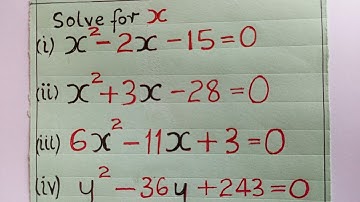 Solve for x
(i) x² - 2x - 15 = 0
(ii) x² + 3x - 28 = 0
(iii) 6x² - 11x + 3 = 0
(iv) y² - 36y + 243 = 0